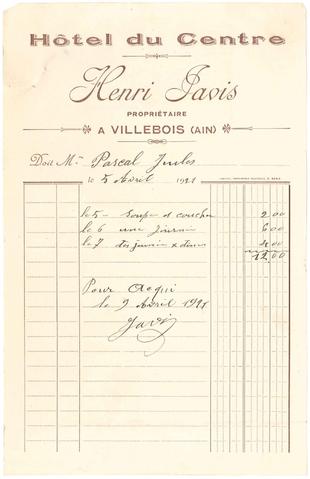 Hôtel du Centre
Henri Javis
PROPRIÉTAIRE
A VILLEBOIS (AIN)
Doit Mr Pascal Jules
le 5 Avril 1921
le 5 soupé et couché 2.00
le 6 une journée 6.00
le 7 déjeuné x 4.00
12.00
Pour Acqui
le 9 Avril 1921
Javis